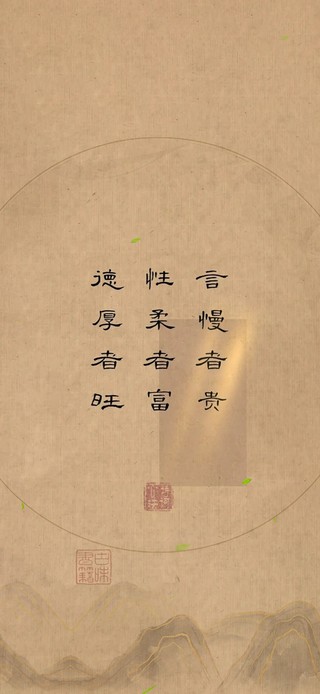 言慢者贵
性柔者富
德厚者旺